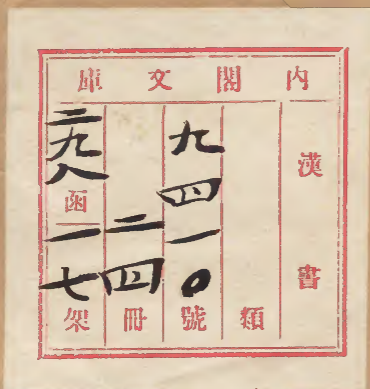 內閣文庫
漢書
類
九四一〇號
二四冊
三九八函
一七架